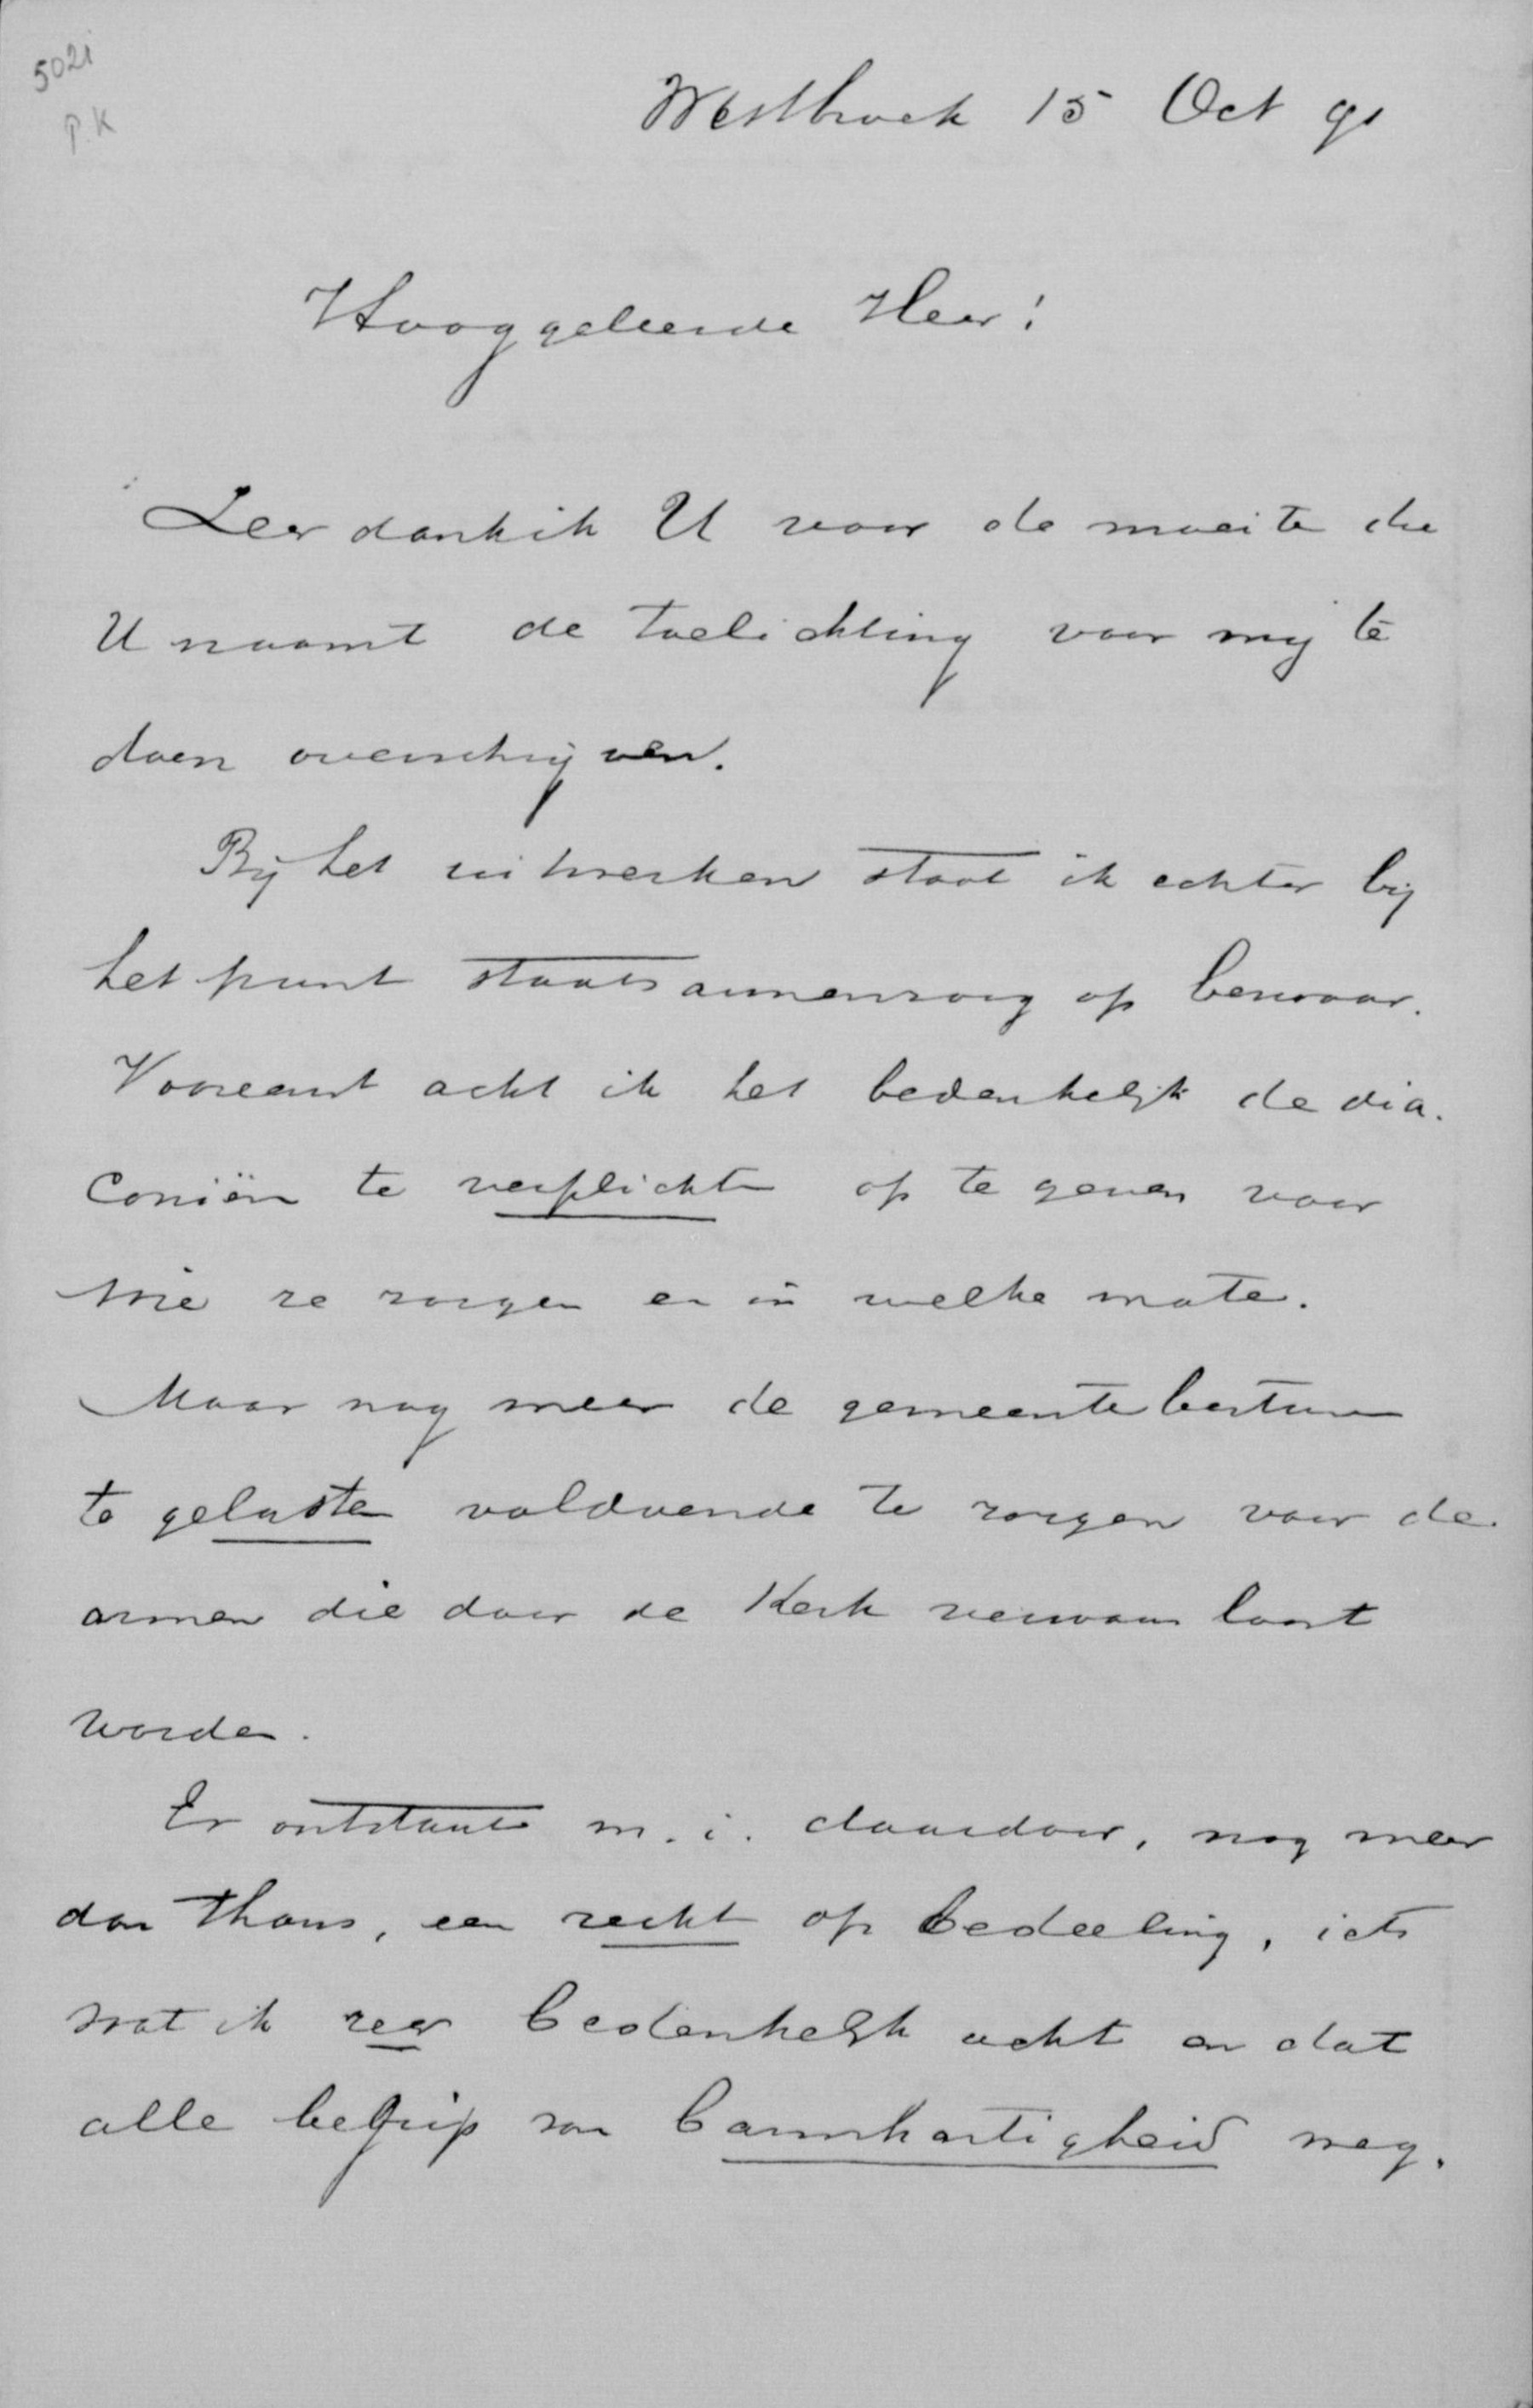 5021
P.K
Westbroek 15 Oct 91
Hooggeleerde Heer!
Zeer dank ik U voor de moeite die
U naamt de toelichting voor mij te
doen overschrijven.
Bij het uitwerken stoot ik echter bij
het punt staatsarmenzorg op bezwaar.
Vooreerst acht ik het bedenkelijk de dia-
coniën te verplichten op te geven voor
wie ze zorgen en in welke mate.
Maar nog meer de gemeentebesturen
te gelasten voldoende te zorgen voor de
armen die door de Kerk verwaarloost
worden.
Er ontstaat m.i. daardoor, nog meer
dan thans, een recht op bedeeling, iets
wat ik zeer bedenkelijk acht en dat
alle begrip van barmhartigheid weg-